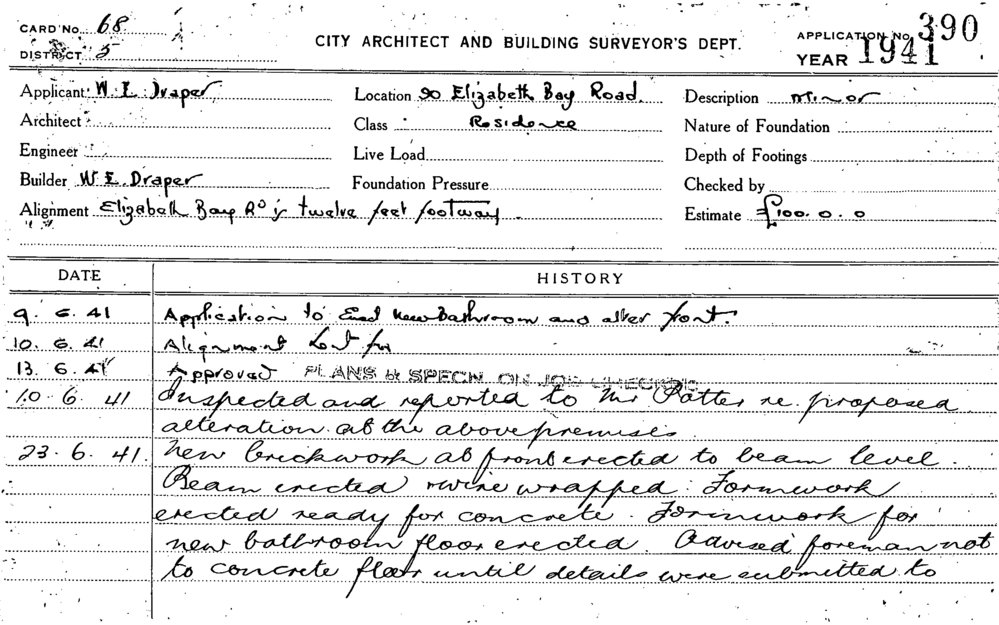 CARD No. 68
DISTRICT 5
CITY ARCHITECT AND BUILDING SURVEYOR'S DEPT.
APPLICATION No. 390
YEAR 1941
Applicant W. E. Draper
Location 90 Elizabeth Bay Road.
Description Minor
Architect
Class Residence
Nature of Foundation
Engineer
Live Load
Depth of Footings
Builder W E. Draper
Foundation Pressure
Checked by
Alignment Elizabeth Bay Rd is twelve feet footway.
Estimate £100. 0. 0
DATE HISTORY
9. 6. 41 Application to Erect New Bathroom and alter front.
10. 6. 41 Alignment for
13. 6. 41 Approved PLANS & SPECN. ON JOB CHECKED
10. 6. 41 Inspected and reported to Mr Potter re. proposed
alteration at the above premises.
23. 6. 41. New brickwork at front erected to beam level.
Beam erected & wire wrapped. Formwork
erected ready for concrete. Formwork for
new bathroom floor erected. Advised foreman not
to concrete floor until details were submitted to